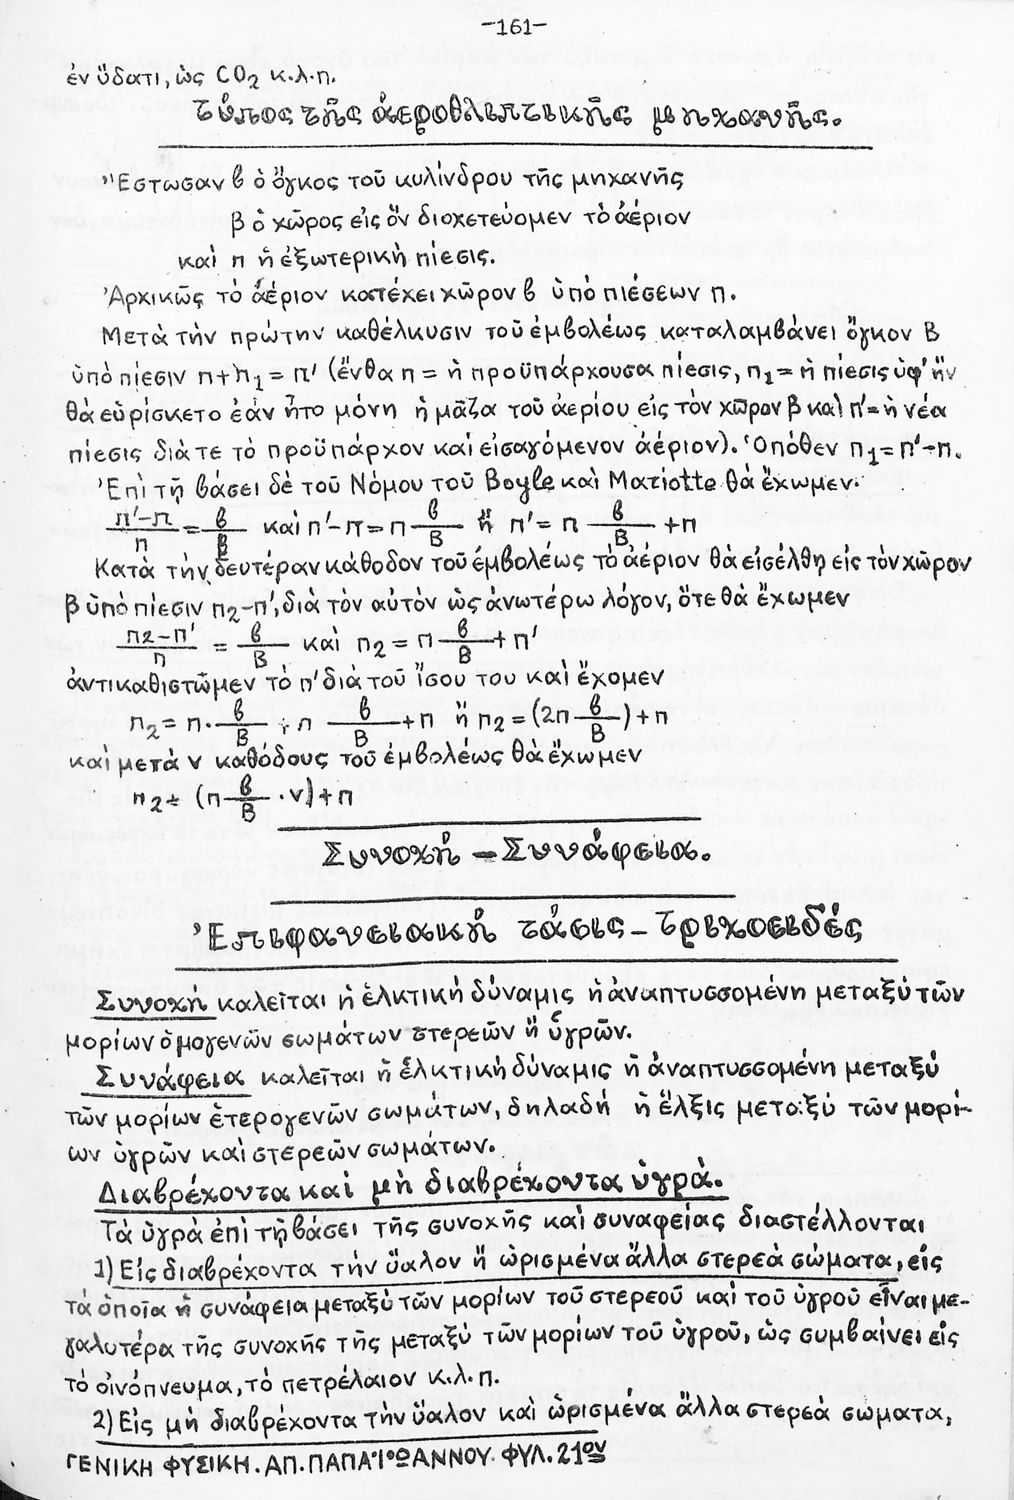 -161-
ἐν ὕδατι, ὡς CO2 κ.λ.π.
τύπος τῆς ἀεροθλιπτικῆς μηχανῆς.
"Εστωσαν β ὁ ὄγκος τοῦ κυλίνδρου τῆς μηχανῆς
β ὁ χῶρος εἰς ὅν διοχετεύομεν τὸ ἀέριον
καὶ π ἡ ἐξωτερικὴ πίεσις.
Ἀρχικῶς τὸ ἀέριον κατέχει χῶρον β ὑπὸ πιέσεων π.
Μετὰ τὴν πρώτην καθέλκυσιν τοῦ ἐμβολέως καταλαμβάνει ὄγκον Β
ὑπὸ πίεσιν π+π1 = π' (ἔνθα π = ἡ προϋπάρχουσα πίεσις, π1 = ἡ πίεσις ὑφ' ἥν
θὰ εὑρίσκετο ἐὰν ἦτο μόνη ἡ μᾶζα τοῦ ἀερίου εἰς τὸν χῶρον β καὶ π'= ἡ νέα
πίεσις διὰ τε τὸ προϋπάρχον καὶ εἰσαγόμενον ἀέριον). Ὁπόθεν π1 = π'-π.
Ἐπὶ τῇ βάσει δὲ τοῦ Νόμου τοῦ Boyle καὶ Mariotte θὰ ἔχωμεν:
π'-π/π = β/Β καὶ π'-π = π β/Β ἤ π' = π β/Β +π
Κατὰ τὴν δευτέραν κάθοδον τοῦ ἐμβολέως τὸ ἀέριον θὰ εἰσέλθη εἰς τὸν χῶρον
β ὑπὸ πίεσιν π2-π', διὰ τὸν αὐτὸν ὡς ἀνωτέρω λόγον, ὅτε θὰ ἔχωμεν
π2-π'/π = β/Β καὶ π2 = π β/Β + π'
ἀντικαθιστῶμεν τὸ π' διὰ τοῦ ἴσου του καὶ ἔχομεν
π2 = π· β/Β + π β/Β +π ἤ π2 = (2π β/Β) +π
καὶ μετὰ ν καθόδους τοῦ ἐμβολέως θὰ ἔχωμεν
π2 = (π β/Β ·ν)+π
Συνοχή - Συνάφεια.
Ἐπιφανειακή τάσις - τριχοειδές
Συνοχή καλεῖται ἡ ἑλκτική δύναμις ἡ ἀναπτυσσομένη μεταξύ τῶν
μορίων ὁμογενῶν σωμάτων στερεῶν ἤ ὑγρῶν.
Συνάφεια καλεῖται ἡ ἑλκτική δύναμις ἡ ἀναπτυσσομένη μεταξύ
τῶν μορίων ἑτερογενῶν σωμάτων, δηλαδή ἡ ἕλξις μεταξύ τῶν μορί-
ων ὑγρῶν καὶ στερεῶν σωμάτων.
Διαβρέχοντα καὶ μὴ διαβρέχοντα ὑγρά.
Τὰ ὑγρὰ ἐπὶ τῇ βάσει τῆς συνοχῆς καὶ συναφείας διαστέλλονται
1) Εἰς διαβρέχοντα τὴν ὕαλον ἤ ὡρισμένα ἄλλα στερεὰ σώματα, εἰς
τὰ ὁποῖα ἡ συνάφεια μεταξύ τῶν μορίων τοῦ στερεοῦ καὶ τοῦ ὑγροῦ εἶναι με-
γαλυτέρα τῆς συνοχῆς τῆς μεταξύ τῶν μορίων τοῦ ὑγροῦ, ὡς συμβαίνει εἰς
τὸ οἰνόπνευμα, τὸ πετρέλαιον κ.λ.π.
2) Εἰς μὴ διαβρέχοντα τὴν ὕαλον καὶ ὡρισμένα ἄλλα στερεὰ σώματα,
ΓΕΝΙΚΗ ΦΥΣΙΚΗ. ΑΠ. ΠΑΠΑΪΩΑΝΝΟΥ. ΦΥΛ. 21ον